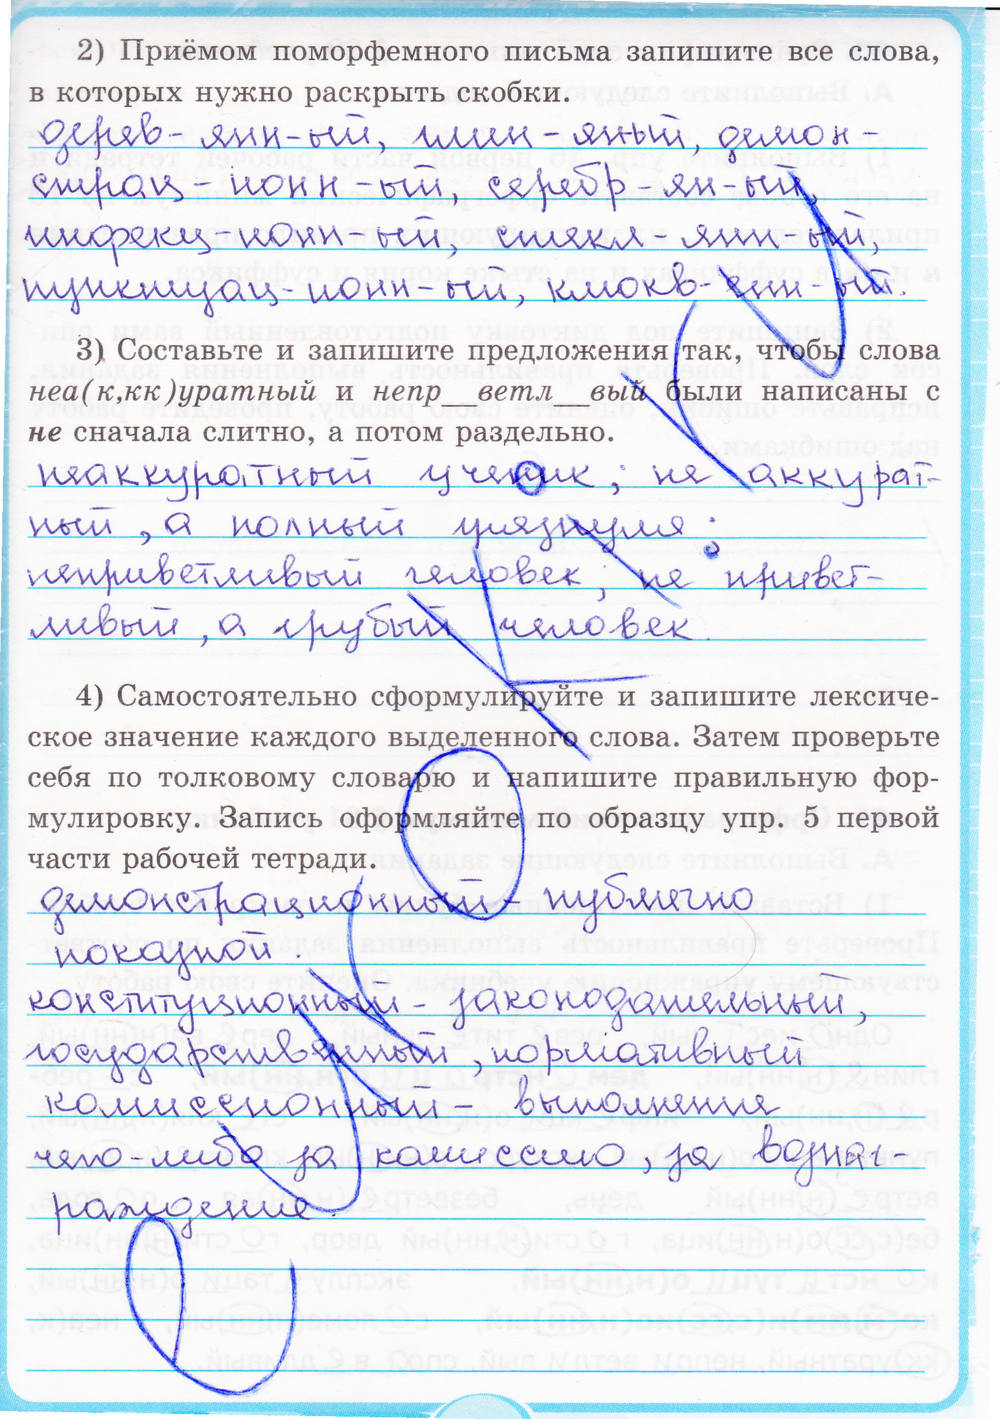 2) Приёмом поморфемного письма запишите все слова,
в которых нужно раскрыть скобки.
дерев-янн-ый, глин-яный, демон-
страц-ионн-ый, серебр-ян-ый,
инфекц-ионн-ый, стекл-янн-ый,
пунктуац-ионн-ый, клюкв-енн-ый.
3) Составьте и запишите предложения так, чтобы слова
неа(к,кк)уратный и непр__ветл__вый были написаны с
не сначала слитно, а потом раздельно.
неаккуратный ученик; не аккурат-
ный, а полный грязнуля;
неприветливый человек; не привет-
ливый, а грубый человек.
4) Самостоятельно сформулируйте и запишите лексиче-
ское значение каждого выделенного слова. Затем проверьте
себя по толковому словарю и напишите правильную фор-
мулировку. Запись оформляйте по образцу упр. 5 первой
части рабочей тетради.
демонстрационный - публично
показной.
конституционный - законодательный,
государственный, нормативный
комиссионный - выполнения
чего-либо за комиссию, за вознаг-
раждение.